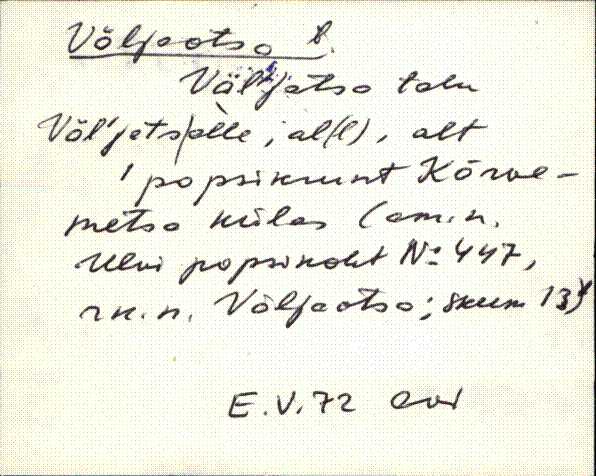 Väljaotsa t.
Väl'jatsa talu
Väl'jats|alle, al(l), alt
'popsikrunt Kõrve-
metsa külas (am.n.
Ulvi popsikoht № 447,
rk.n. Väljaotsa; skeem 13)
E.V.72 Avi